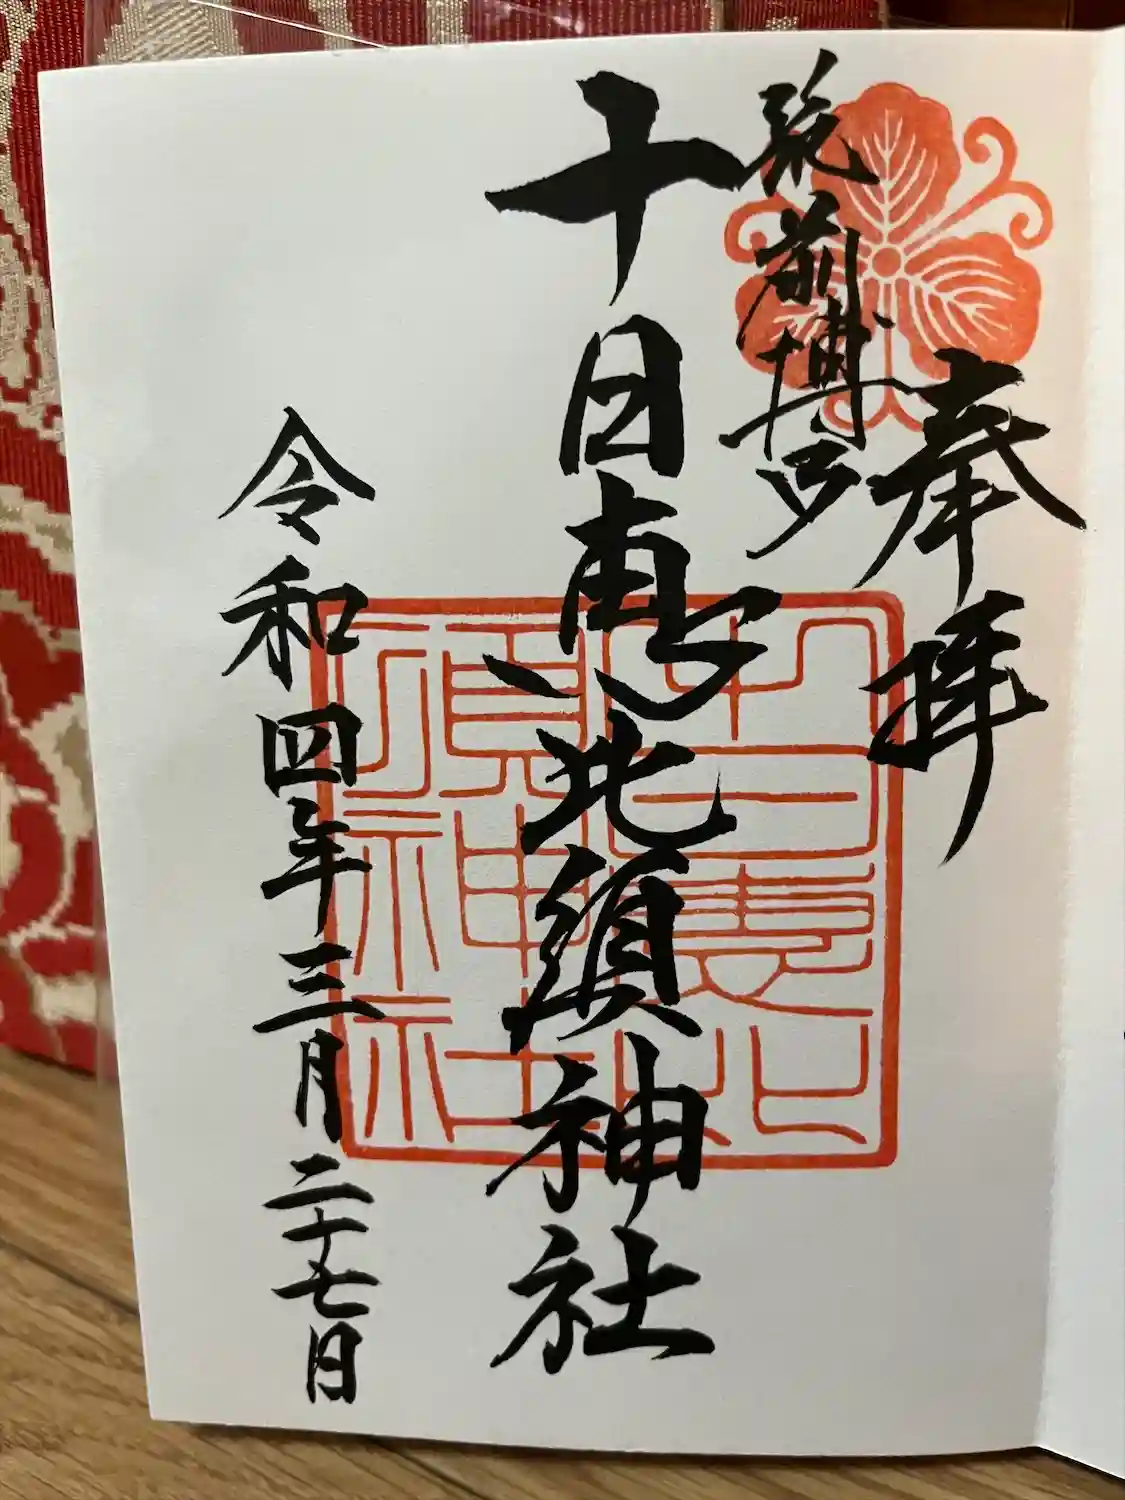 奉拝
筑前博多
十日恵比須神社
令和四年三月二十七日
十日恵比
須神社